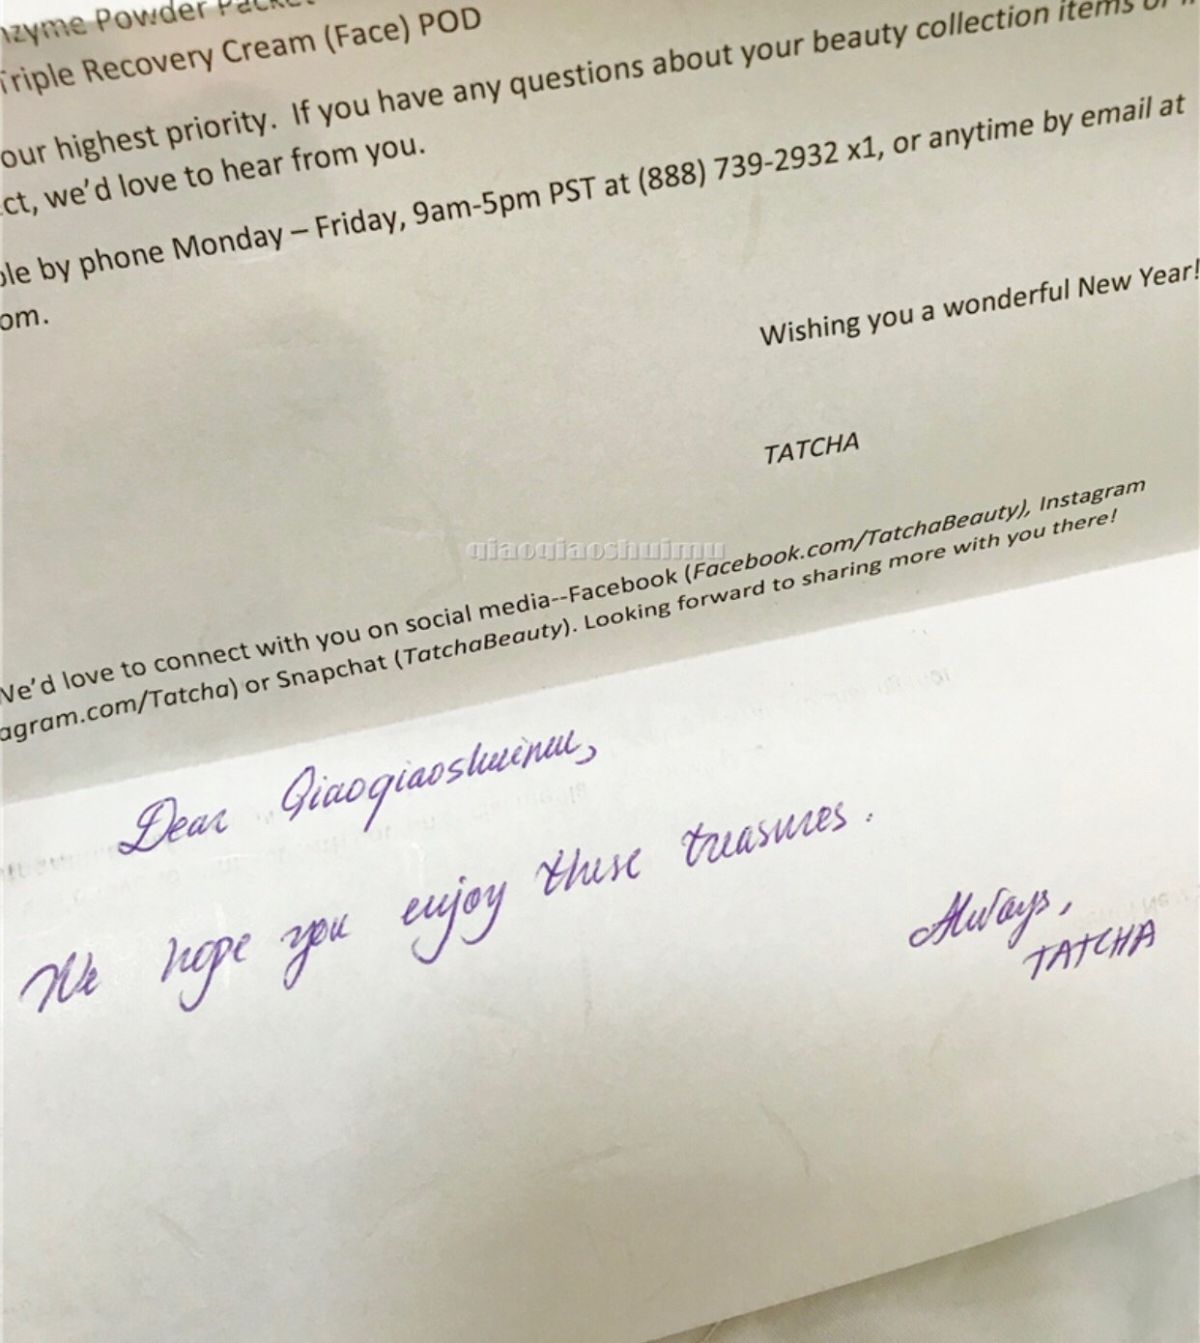 nzyme Powder Packet
Triple Recovery Cream (Face) POD
our highest priority. If you have any questions about your beauty collection items or
ct, we'd love to hear from you.
ble by phone Monday – Friday, 9am-5pm PST at (888) 739-2932 x1, or anytime by email at
om.
Wishing you a wonderful New Year!
TATCHA
qiaoqiaoshuimu
We'd love to connect with you on social media--Facebook (Facebook.com/TatchaBeauty), Instagram
agram.com/Tatcha) or Snapchat (TatchaBeauty). Looking forward to sharing more with you there!
Dear Qiaoqiaoshuimu,
We hope you enjoy these treasures.
Always,
TATCHA